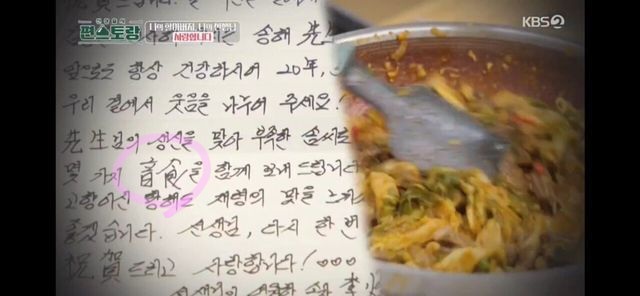 편스토랑
나의 할아버지, 나의 선생님
사랑합니다
KBS2
송해 先生
앞으로도 항상 건강하시어 20年,
우리 곁에서 웃음을 나누어 주세요!
先生님의 생신을 맞아 부족한 솜씨로
몇 가지 音食을 함께 보내 드립니다
고향이신 황해도 재령의 맛을 느끼
좋겠습니다. 선생님, 다시 한 번
祝賀드리고 사랑합니다! ○○○